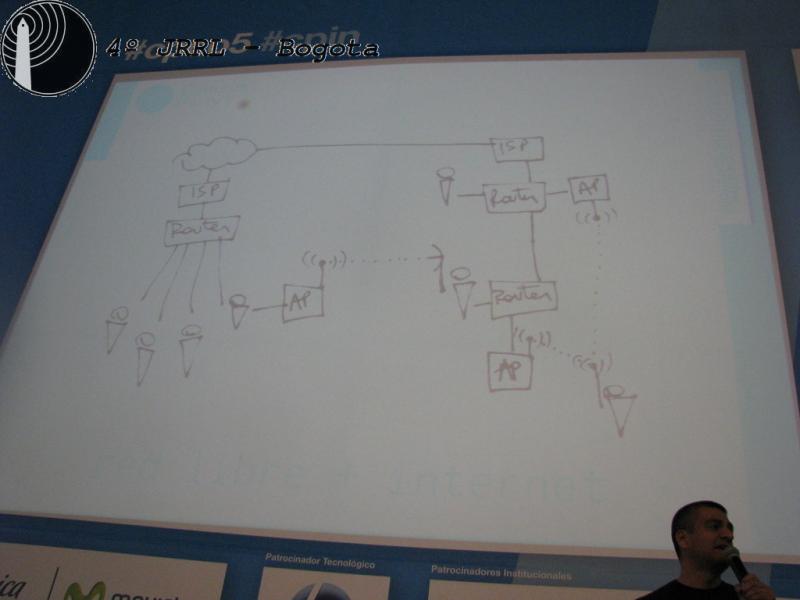 4º JRRL - Bogota
ISP
ISP
Router
AP
Router
AP
Router
AP
red libre + internet
Patrocinador Tecnológico
Patrocinadores Institucionales